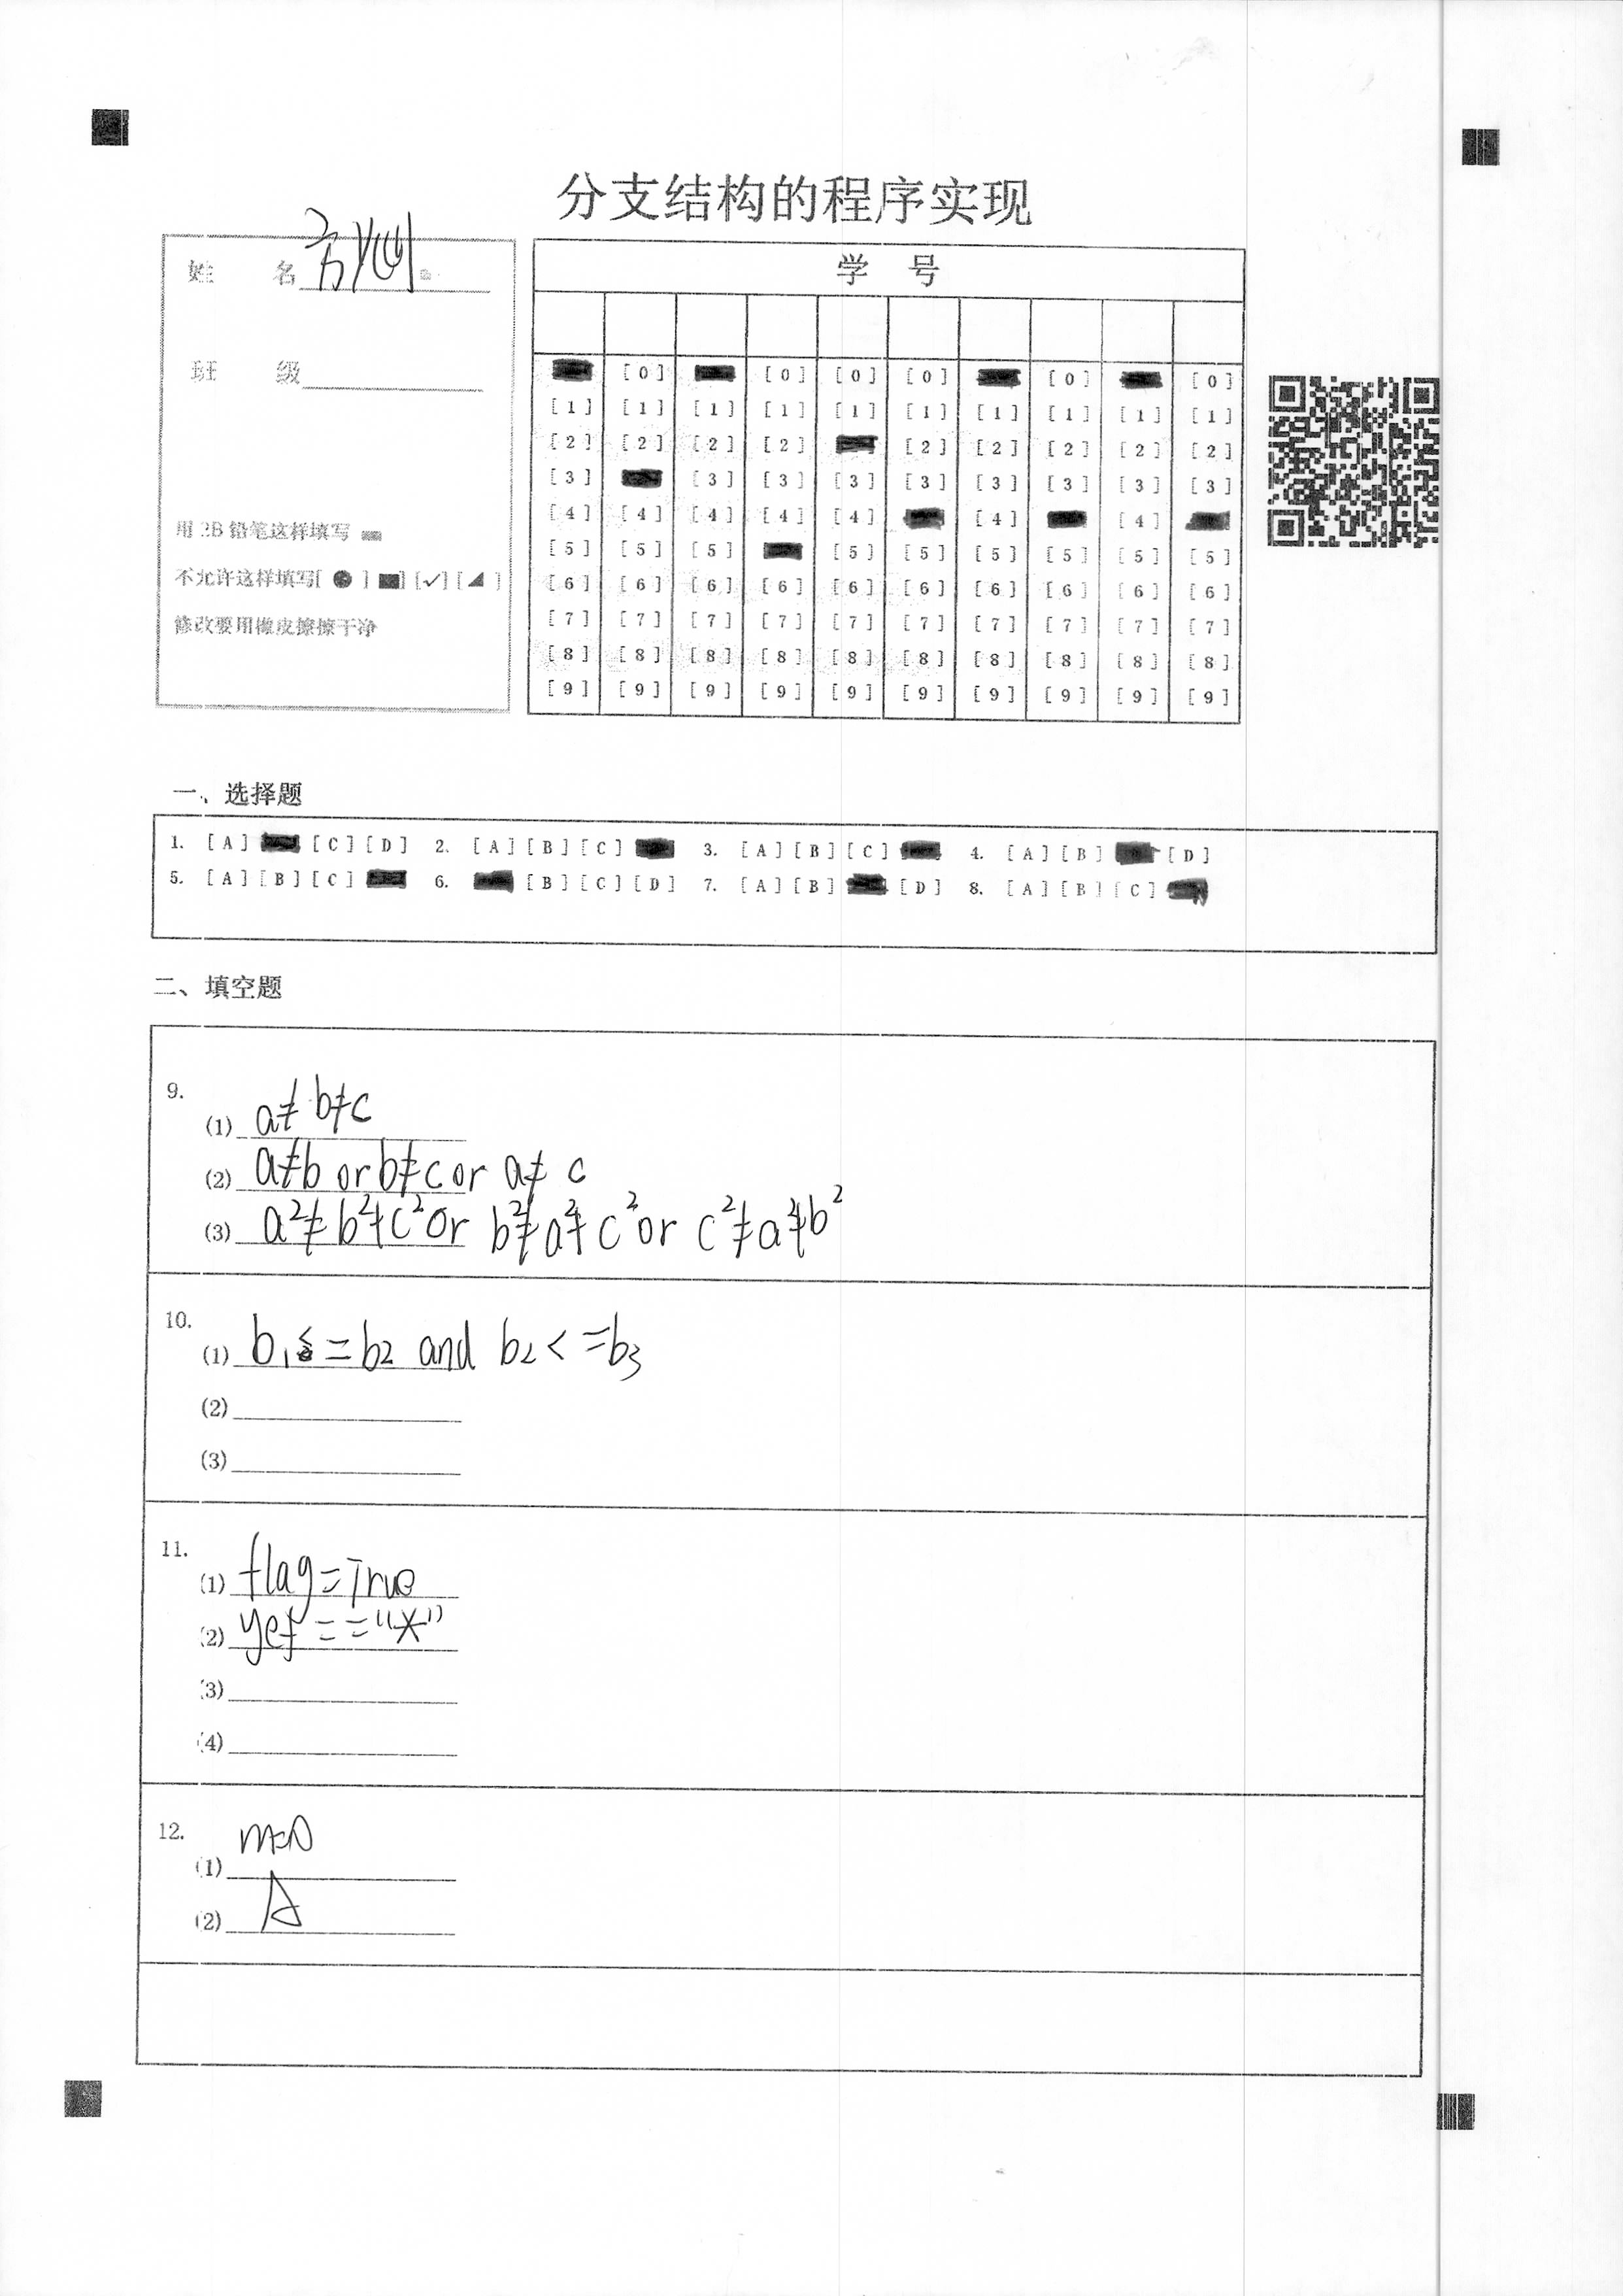 分支结构的程序实现
姓 名
班 级
用 2B 铅笔这样填写
不允许这样填写[ ● ] [■] [✓] [◢ ]
修改要用橡皮擦擦干净
学 号
[0] [0] [0] [0] [0] [0]
[1] [1] [1] [1] [1] [1] [1] [1] [1] [1]
[2] [2] [2] [2] [2] [2] [2] [2] [2]
[3] [3] [3] [3] [3] [3] [3] [3] [3]
[4] [4] [4] [4] [4] [4] [4]
[5] [5] [5] [5] [5] [5] [5] [5] [5]
[6] [6] [6] [6] [6] [6] [6] [6] [6] [6]
[7] [7] [7] [7] [7] [7] [7] [7] [7] [7]
[8] [8] [8] [8] [8] [8] [8] [8] [8] [8]
[9] [9] [9] [9] [9] [9] [9] [9] [9] [9]
一、选择题
1. [A] [C] [D] 2. [A] [B] [C] 3. [A] [B] [C] 4. [A] [B] [D]
5. [A] [B] [C] 6. [B] [C] [D] 7. [A] [B] [D] 8. [A] [B] [C]
二、填空题
9.
(1) a≠b≠c
(2) a≠b or b≠c or a≠c
(3) a²≠b²≠c² or b²≠a²≠c² or c²≠a²≠b²
10.
(1) b1<=b2 and b2<=b3
(2)
(3)
11.
(1) flag=True
(2) yef=="*"
(3)
(4)
12.
(1)
(2) A